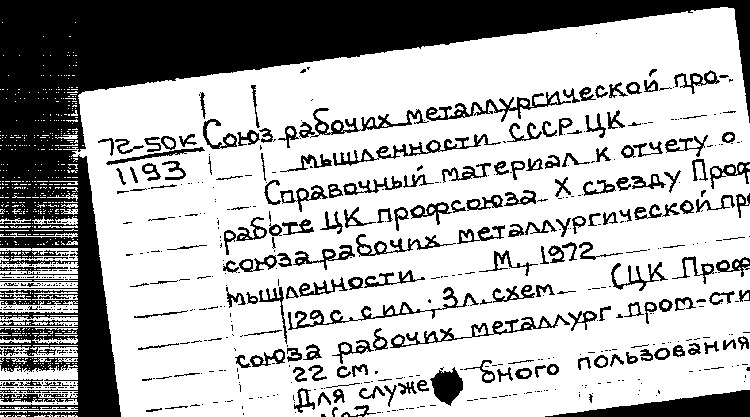 72-50к Союз рабочих металлургической про-
1193 мышленности СССР. ЦК.
Справочный материал к отчету о
работе ЦК профсоюза X съезду Проф
союза рабочих металлургической пр
мышленности. М., 1972
129 с. с ил.; 3 л. схем. (ЦК Проф
союза рабочих металлург. пром-сти
22 см.
Для служе бного пользования